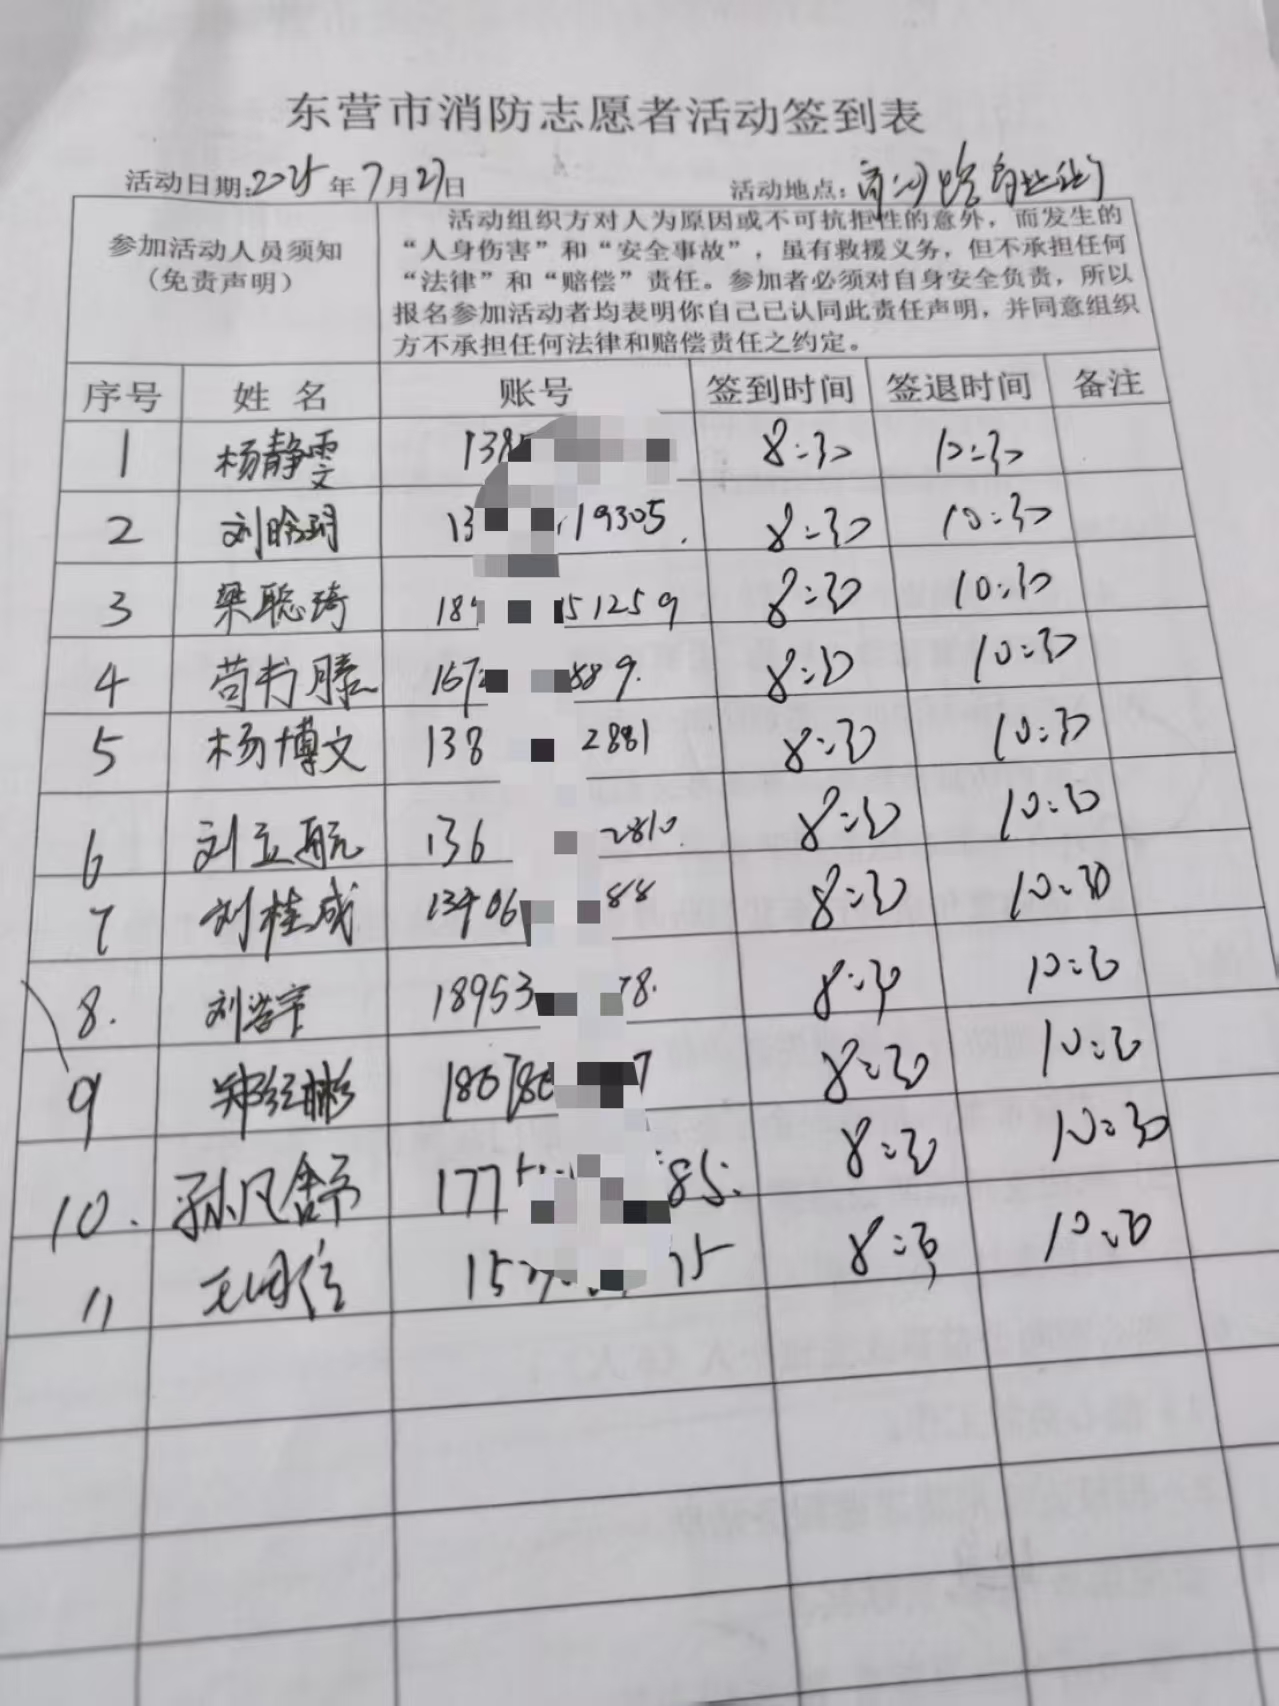 东营市消防志愿者活动签到表
活动日期:2025年7月27日 活动地点:
参加活动人员须知
(免责声明)
活动组织方对人为原因或不可抗拒性的意外，而发生的
“人身伤害”和“安全事故”，虽有救援义务，但不承担任何
“法律”和“赔偿”责任。参加者必须对自身安全负责，所以
报名参加活动者均表明你自己已认同此责任声明，并同意组织
方不承担任何法律和赔偿责任之约定。
序号 姓 名 账号 签到时间 签退时间 备注
1 杨静雯 138 8:30 10:30
2 刘晗玥 13 19305 8:30 10:30
3 梁聪琦 18 51259 8:30 10:30
4 苟书滕 167 889 8:30 10:30
5 杨博文 138 2881 8:30 10:30
6 刘立航 136 2810 8:30 10:30
7 刘桂成 13406 88 8:30 10:30
8. 刘浩宇 18953 78. 8:30 10:30
9 郑红彬 18678 7 8:30 10:30
10. 孙凡舒 177 85. 8:30 10:30
11 15 75 8:30 10:30